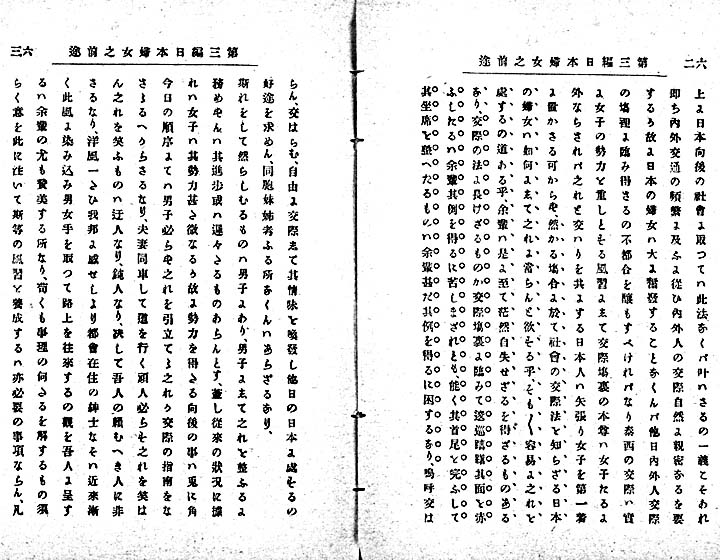 第三編日本婦女之前途 六二
上ま日本向後の社會ま取つてハ此法をくバ叶ハさるの一義こそあれ
即ち內外交通の頻繁ま及ふま從ひ內外人の交際自然ま親密をるを要
するら故ま日本の婦女ハ大ま奮發することをくんバ他日內外人交際
の塲裡ま臨み得さるの不都合を釀もすべけれバなり泰西の交際ハ實
ま女子の勢力を重しとそる風習ままて交際塲裏の本尊ハ女子たるま
外ならされバ之れと交ハりを共まする日本人ハ矢張り女子を第一着
ま置かさる可からず、然かる塲合ま於て社會の交際法を知らざる日本
の婦女ハ如何ままて之れま當らんと欲そる乎、そも〱容易ま之れと
處するの道ある乎、余輩ハ是ま至て茫然自失せざるを得ざるものある
あり、交際の法ま長けざるものか交際塲裏ま臨みて逡巡躊躇其面を赤
ふしたるハ余輩其例を得るま苦しまざれとも、能く其首尾を完ふして
其坐席を整へたるものハ余輩甚だ其例を得るに困するあり、嗚呼交は
第三編日本婦女之前途 六三
らん、交はらむ、自由ま交際まて其情味を喚發し他日の日本ま處そるの
好途を求めん、同胞姉妹考ふる所をくんハあらざるあり、
斯れをして然らしむるものハ男子まあり、男子ままて之れを整ふるま
務めずんハ其進步或ハ遲々さるものあらんとす、蓋し從來の狀况に據
れハ女子ハ其勢力甚さ微なるらう故ま勢力を得さる向後の事ハ兎に角
今日の順序まてハ男子必らず之れを引立てゝ之れら交際の指南をな
さゝるへうらさるなり、夫妻同車して道を行く頑人必らそ之れを笑は
ん之れを笑ふものハ迂人なり、鈍人なり、决して吾人の賴むへき人に非
さるなり、洋風一さひ我邦ま感せしより都會在住の紳士なそハ近來漸
く此風ま染み込み男女手を取つて路上を往來するの觀を吾人ま呈す
るハ余輩の尤も贊美する所なり、苟くも事理の何さるを解するもの須
らく意を此に注いて斯等の風習を養成するハ亦必要の事項ならん、凡